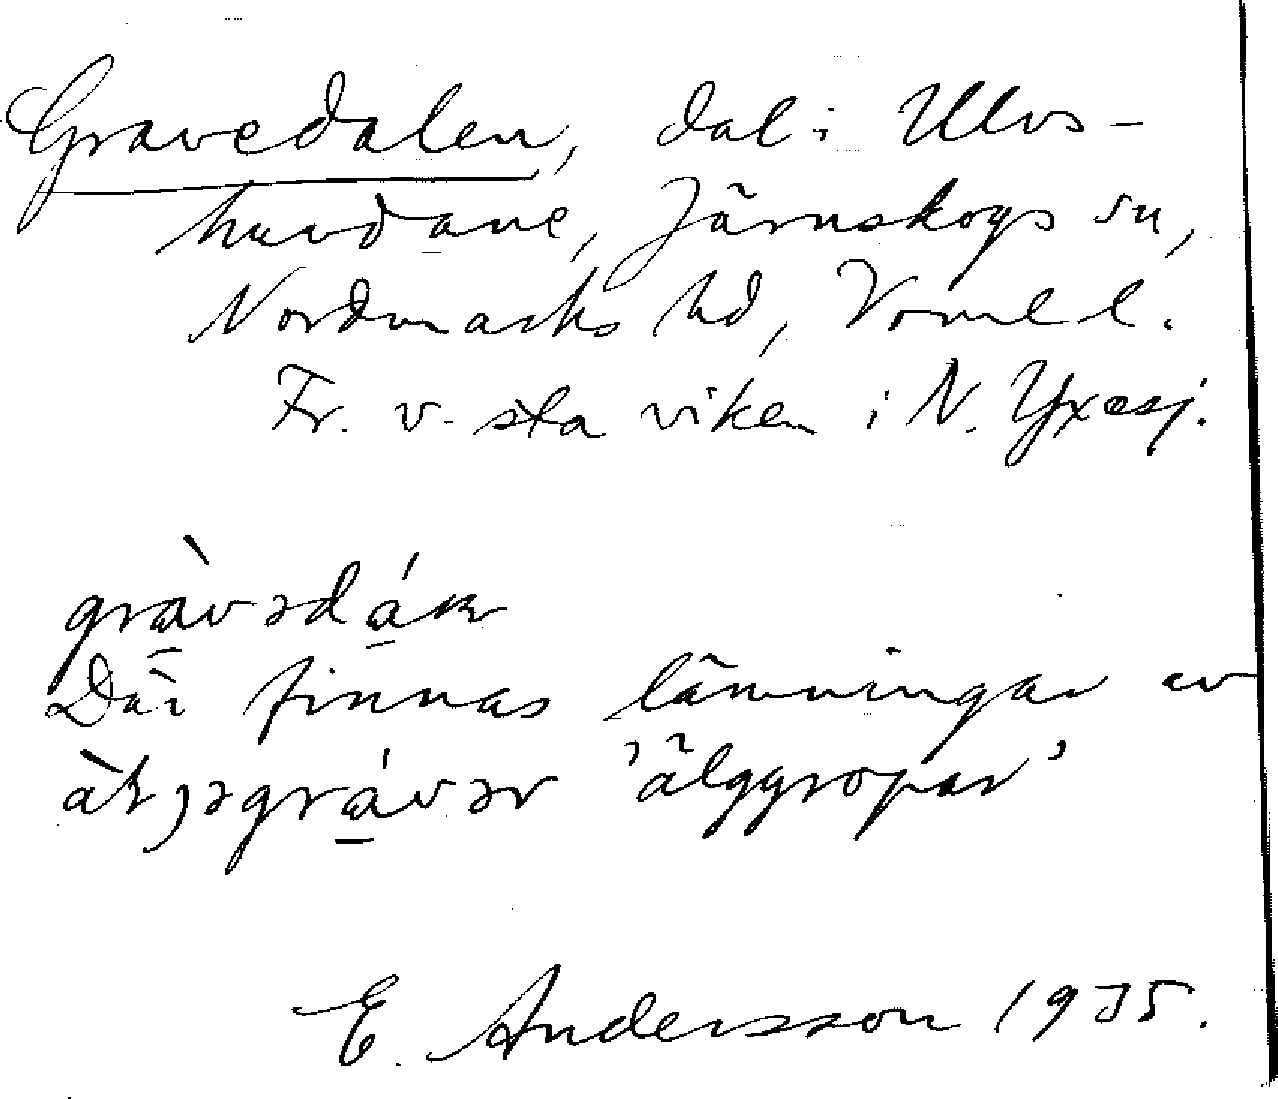 Gravedalen, dal i Ulvs-
huvdane, Järnskogs sn,
Nordmarks hd, Vrml l.
Fr. v. sta viken i N. Yxesj.
Där finnas lämningar av
'älggropar'
E. Andersson 1935.